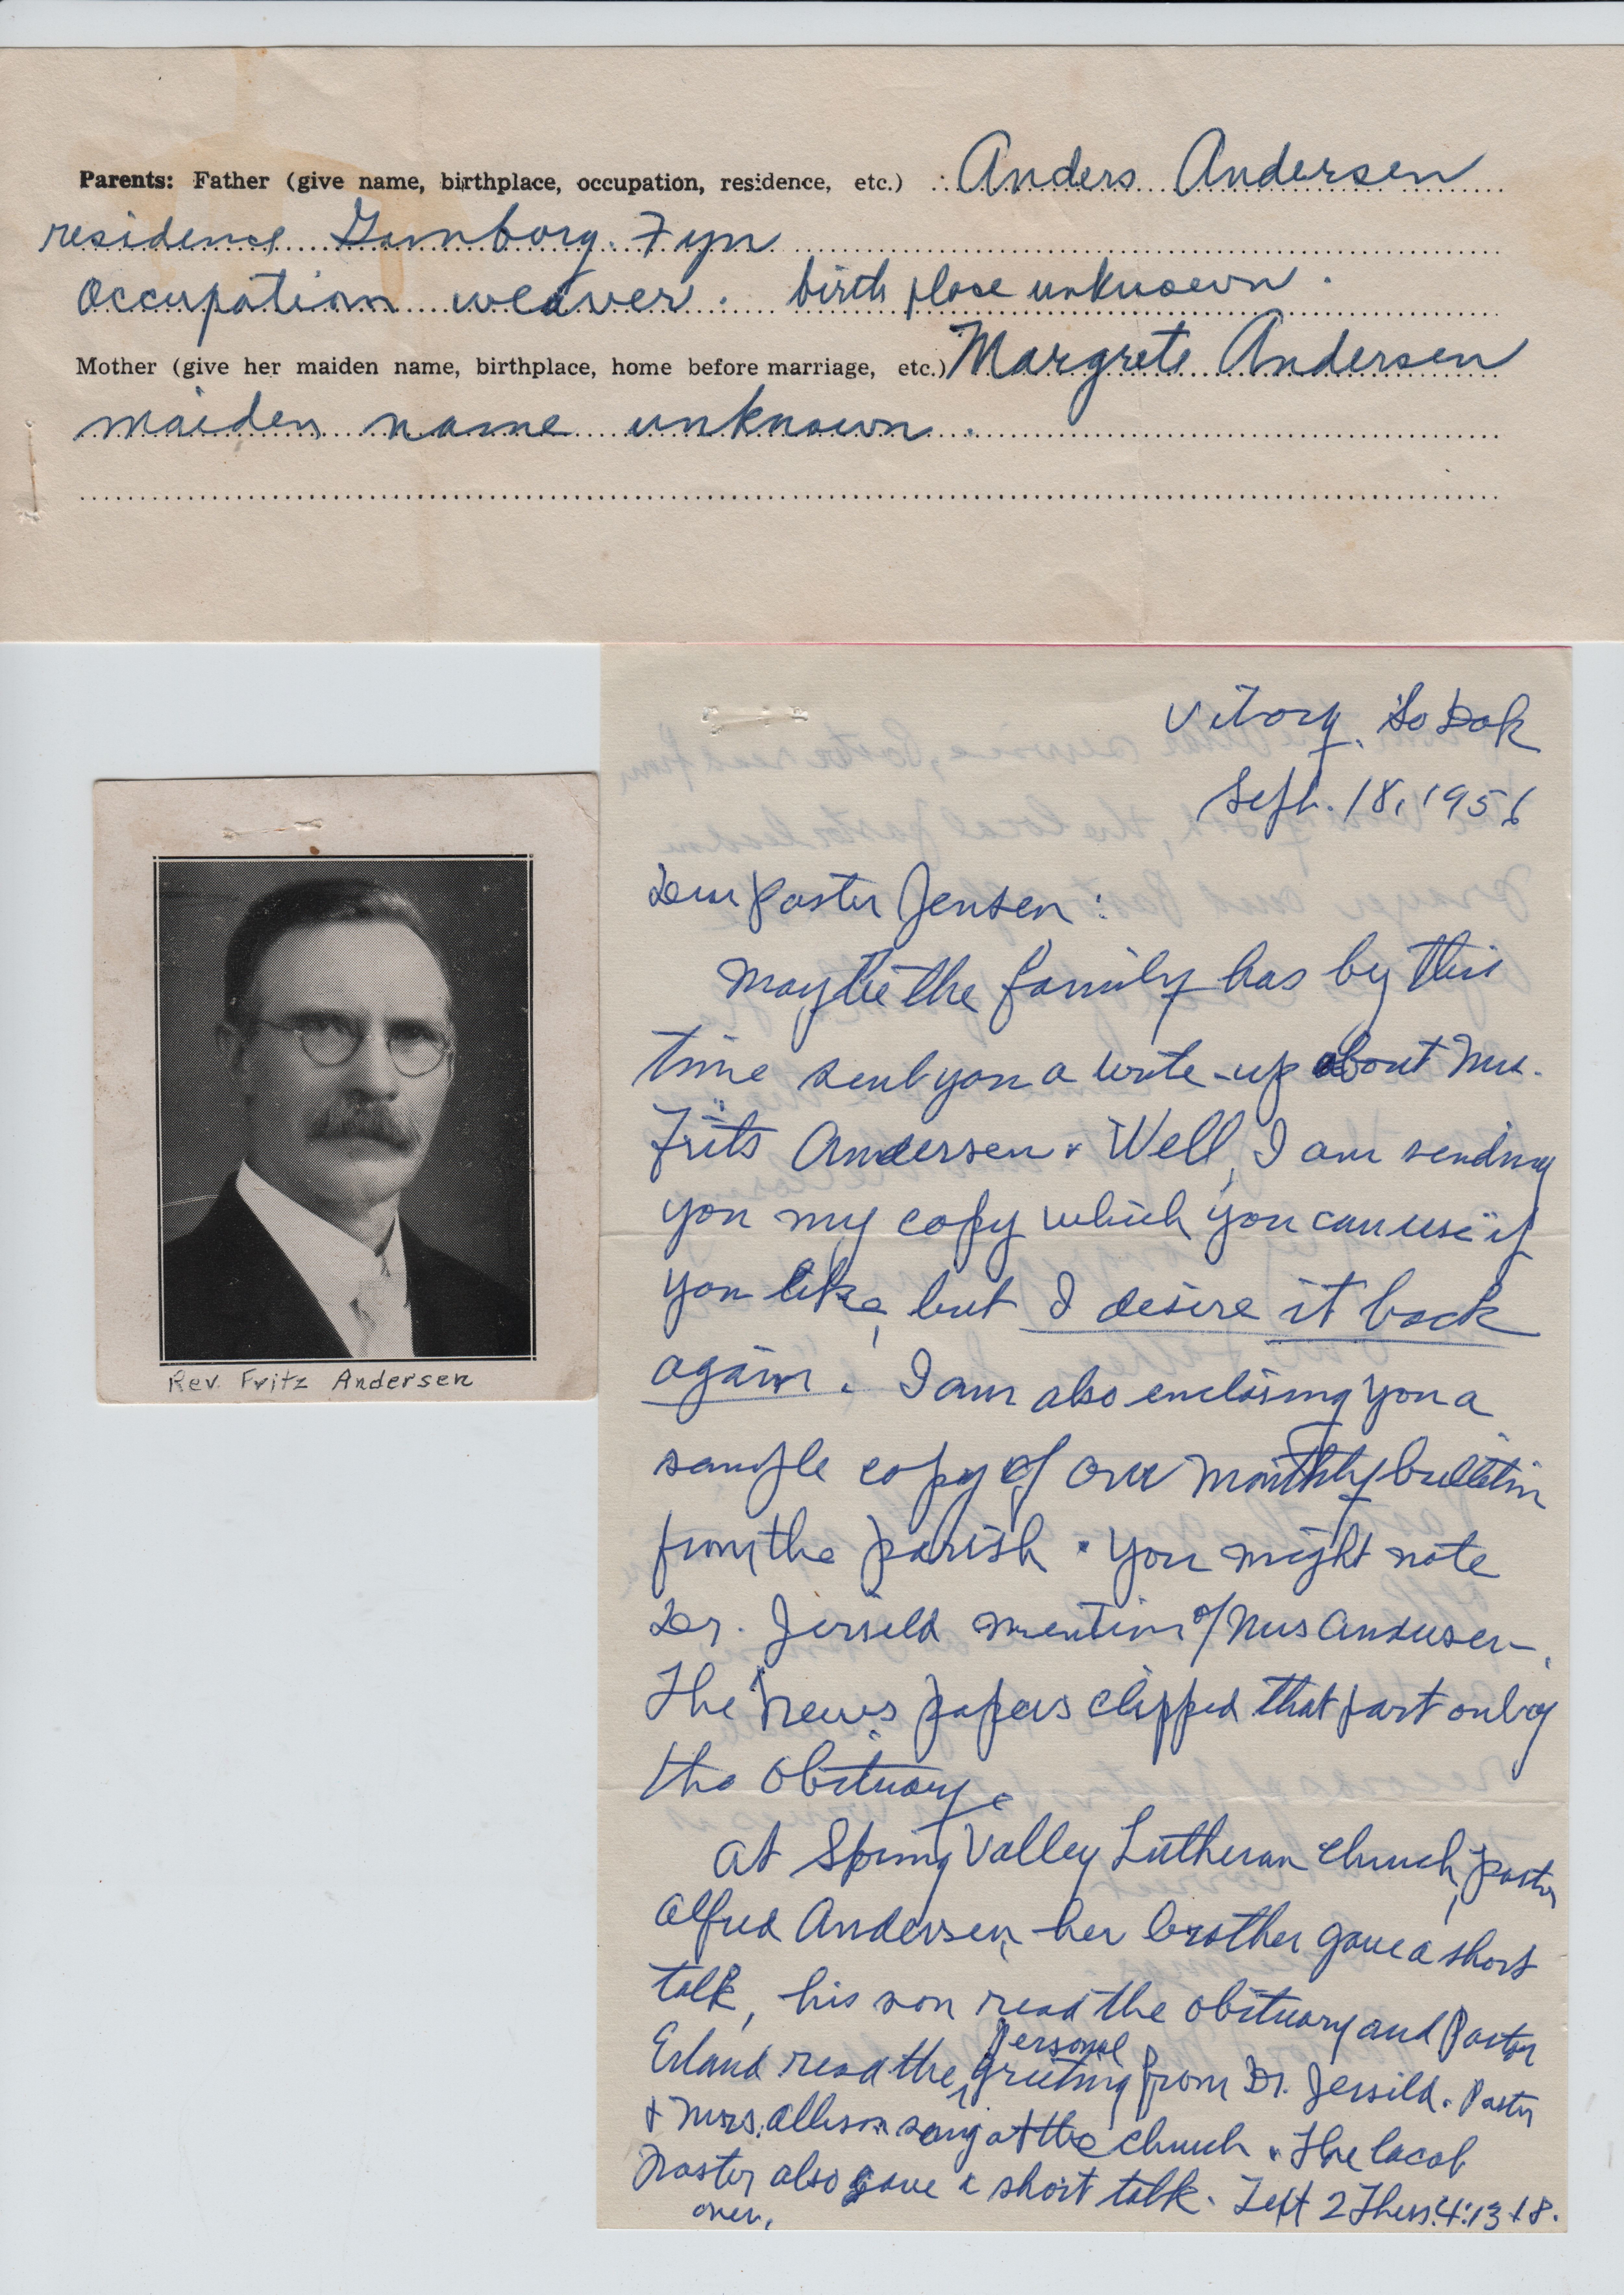 Parents: Father (give name, birthplace, occupation, residence, etc.) Anders Andersen
residence Gamborg. Fyn
occupation weaver. birth place unknown.
Mother (give her maiden name, birthplace, home before marriage, etc.) Margrete Andersen
maiden name unknown.
Rev. Fritz Andersen
Viborg, So Dak
Sept. 18, 1956
Dear Pastor Jensen:
Maybe the family has by this
time sent you a write-up about Mrs.
Frits Andersen. Well, I am sending
you my copy which you can use if
you like, but I desire it back
again. I am also enclosing you a
sample copy of our monthly bulletin
from the parish. You might note
Dr. Jersild mention of Mrs Andersen.
The news papers clipped that part only
the obituary.
At Spring Valley Lutheran Church, pastor
Alfred Andersen, her brother gave a short
talk, his son read the obituary and Pastor
Erland read the personal greeting from Dr. Jersild. Pastor
& Mrs. Allison sang at the church. The local
Pastor also gave a short talk. Text 2 Thess. 4:13-18.
over.